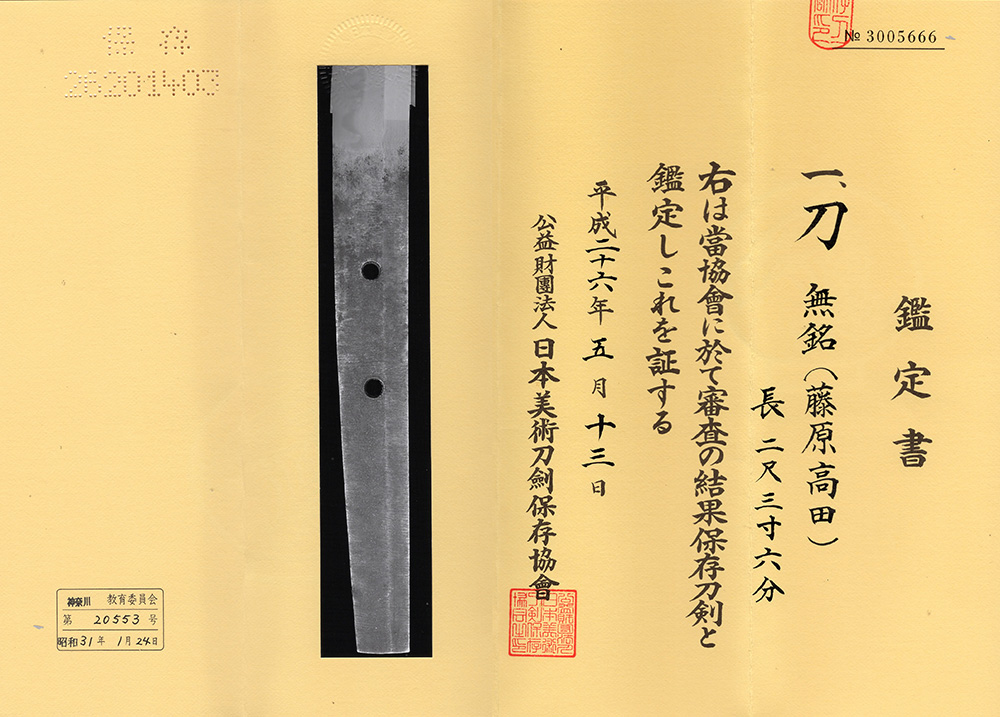 № 3005666
鑑定書
一、刀 無銘(藤原高田)
長 二尺三寸六分
右は當協會に於て審査の結果保存刀剣と
鑑定しこれを証する
平成二十六年 五 月 十三 日
公益財團法人 日本美術刀劍保存協會
保存
26201403
神奈川 教育委員会
第 20553 号
昭和31年 1月24日